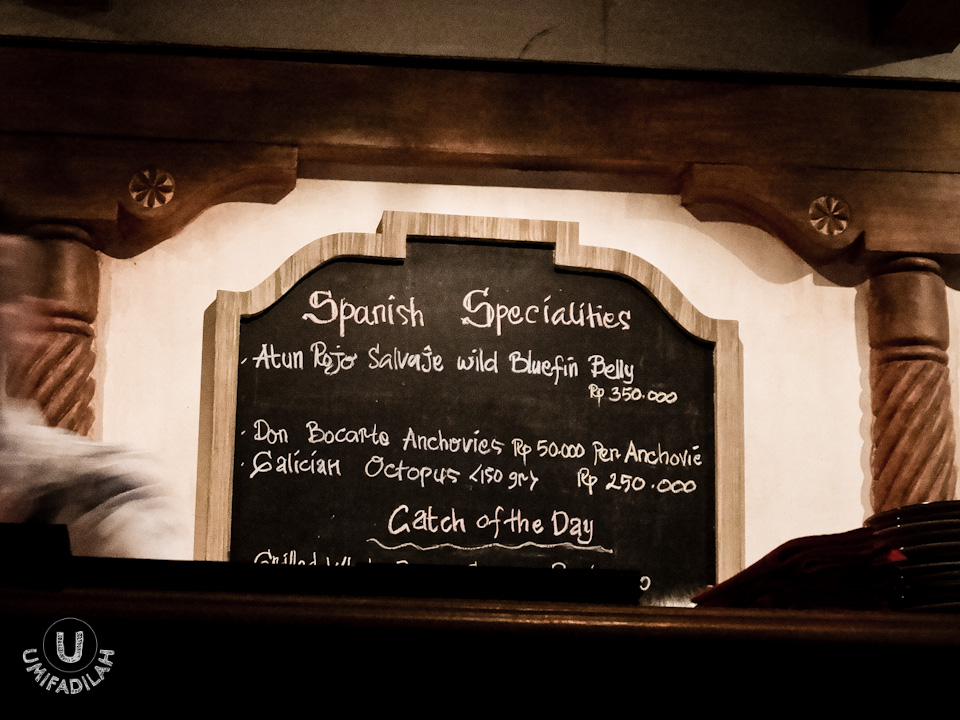 Spanish Specialities
Atun Rojo Salvaje wild Bluefin Belly
Rp 350.000
Don Bocarte Anchovies Rp 50.000 Per Anchovie
Galician Octopus <150 gr> Rp 250.000
Catch of the Day
Grilled
U
UMIFADILAH